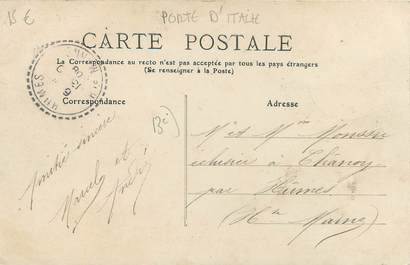 15 €
PORTE D'ITALIE
CARTE POSTALE
La Correspondance au recto n'est pas acceptée par tous les pays étrangers
(Se renseigner à la Poste)
Correspondance
Adresse
HUMES
Amitié sincère
Marcel et
M. et Mme
à Chanoy
par Humes
(Hte Marne)